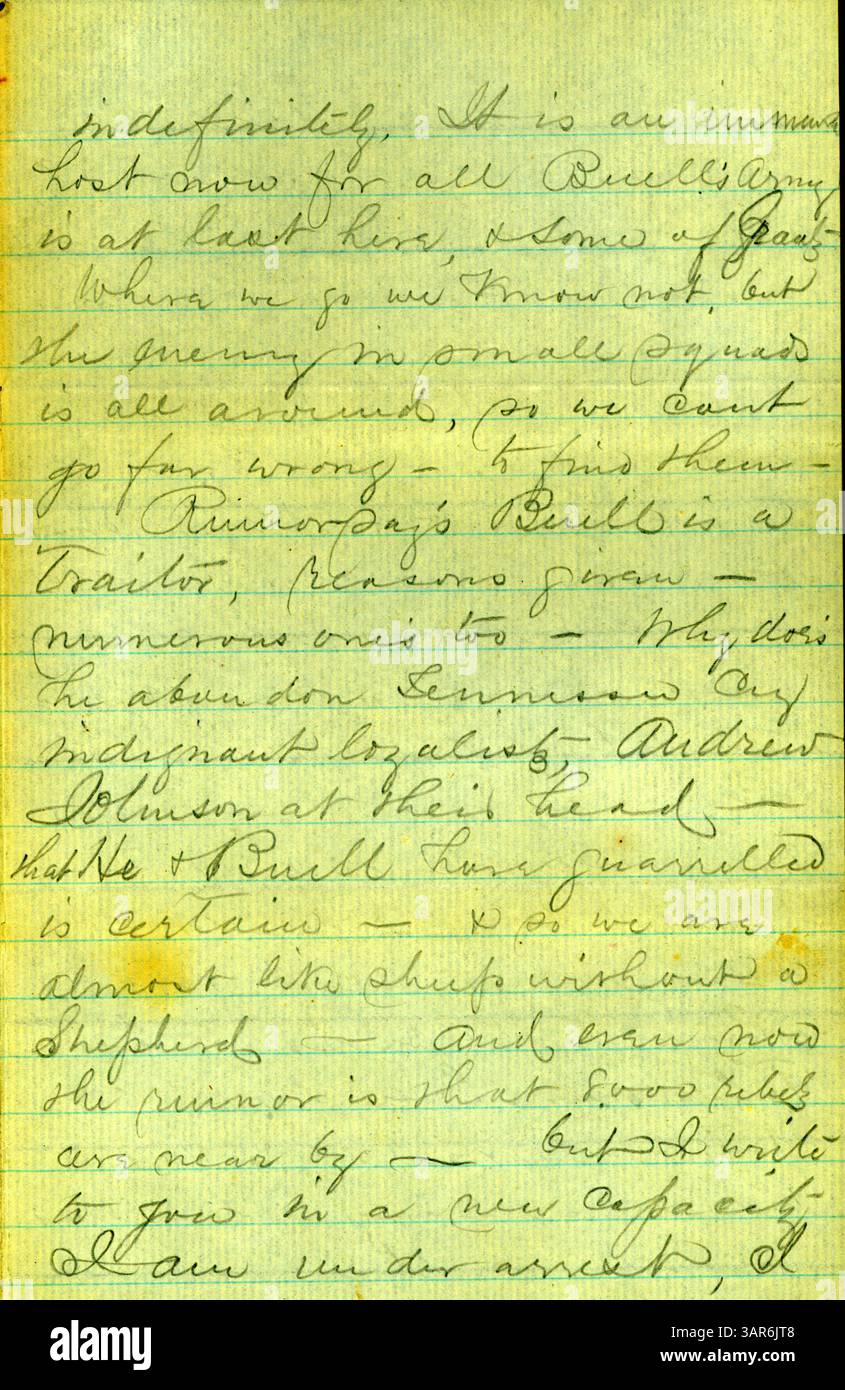 indefinitely. It is an immense
host now for all Buell's Army
is at last here, & some of Grants
Where we go we know not, but
the enemy in small squads
is all around, so we cant
go far wrong – to find them –
Rumor say's Buell is a
Traitor, reasons given –
numerous one's too – Why doe's
he abandon Tennessee Cry
indignant loyalists, Andrew
Johnson at their head –
that He & Buell have quarrelled
is certain – & so we are
almost like sheep without a
Shepherd – And even now
the rumor is that 8000 rebels
are near by – but I write
to you in a new capacity
I am under arrest, I
alamy
Image ID: 3AR6JT8
www.alamy.com